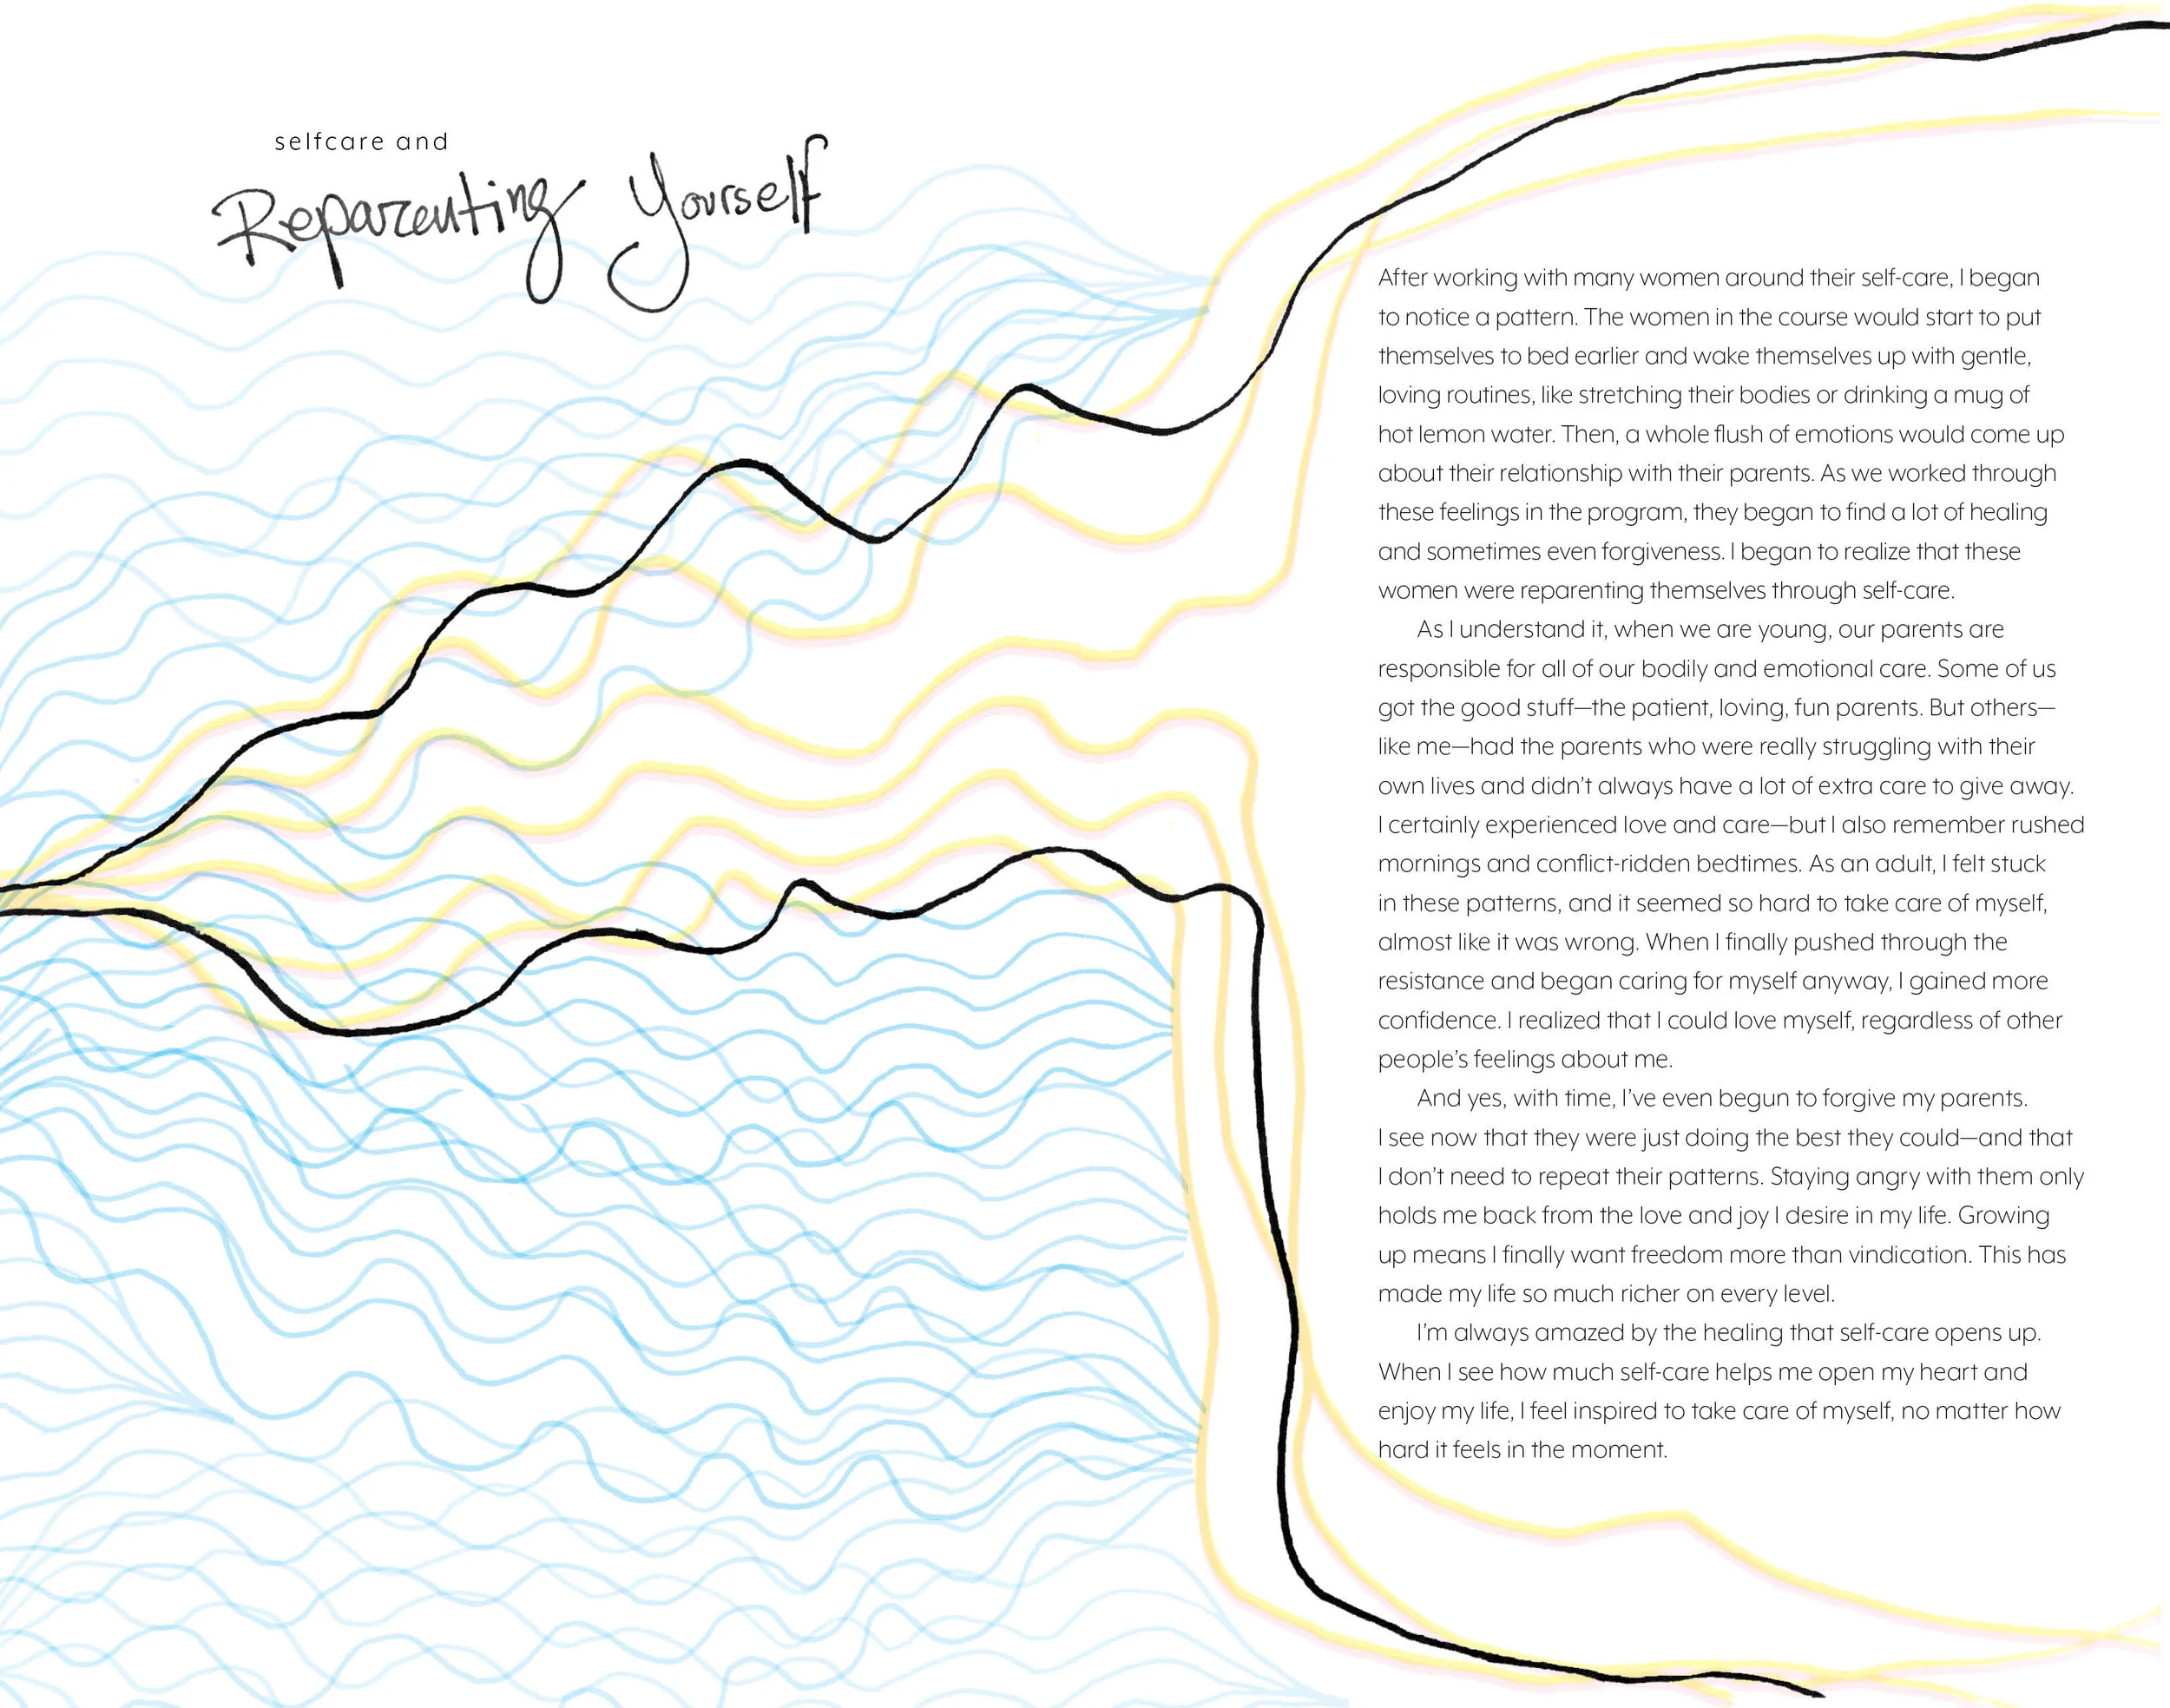 selfcare and
Reparenting Yourself
After working with many women around their self-care, I began
to notice a pattern. The women in the course would start to put
themselves to bed earlier and wake themselves up with gentle,
loving routines, like stretching their bodies or drinking a mug of
hot lemon water. Then, a whole flush of emotions would come up
about their relationship with their parents. As we worked through
these feelings in the program, they began to find a lot of healing
and sometimes even forgiveness. I began to realize that these
women were reparenting themselves through self-care.
As I understand it, when we are young, our parents are
responsible for all of our bodily and emotional care. Some of us
got the good stuff—the patient, loving, fun parents. But others—
like me—had the parents who were really struggling with their
own lives and didn’t always have a lot of extra care to give away.
I certainly experienced love and care—but I also remember rushed
mornings and conflict-ridden bedtimes. As an adult, I felt stuck
in these patterns, and it seemed so hard to take care of myself,
almost like it was wrong. When I finally pushed through the
resistance and began caring for myself anyway, I gained more
confidence. I realized that I could love myself, regardless of other
people’s feelings about me.
And yes, with time, I’ve even begun to forgive my parents.
I see now that they were just doing the best they could—and that
I don’t need to repeat their patterns. Staying angry with them only
holds me back from the love and joy I desire in my life. Growing
up means I finally want freedom more than vindication. This has
made my life so much richer on every level.
I’m always amazed by the healing that self-care opens up.
When I see how much self-care helps me open my heart and
enjoy my life, I feel inspired to take care of myself, no matter how
hard it feels in the moment.